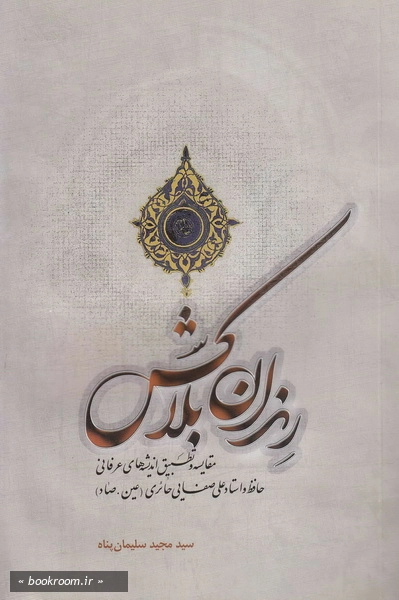 رندان بلاکش
مقایسه و تطبیق اندیشه‌های عرفانی
حافظ و استاد علی صفایی حائری (عین.صاد)
سید مجید سلیمان‌پناه
« bookroom.ir »